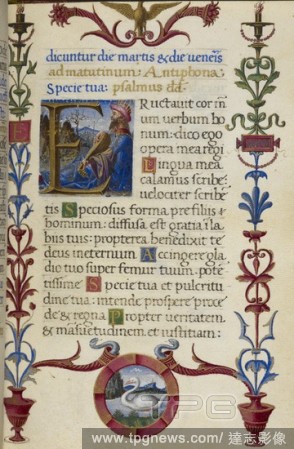 dicuntur die martis & die veneris
ad matutinum: Antiphona
Specie tua: psalmus dd.
E
Ructauit cor m
um uerbum bo
num: dico ego
opera mea regi
Lingua mea
calamus scribe
uelociter scribe
tis Speciosus forma pre filiis
hominum: diffusa est gratia i la
biis tuis: propterea benedixit te
deus in eternum Accingere gla
dio tuo super femur tuum: pote
tissime Specie tua et pulcritu
dine tua: intende prospere proce
de & regna. Propter ueritatem,
& mansuetudinem et iustitiam:
E
TPG
www.tpgnews.com / 達志影像